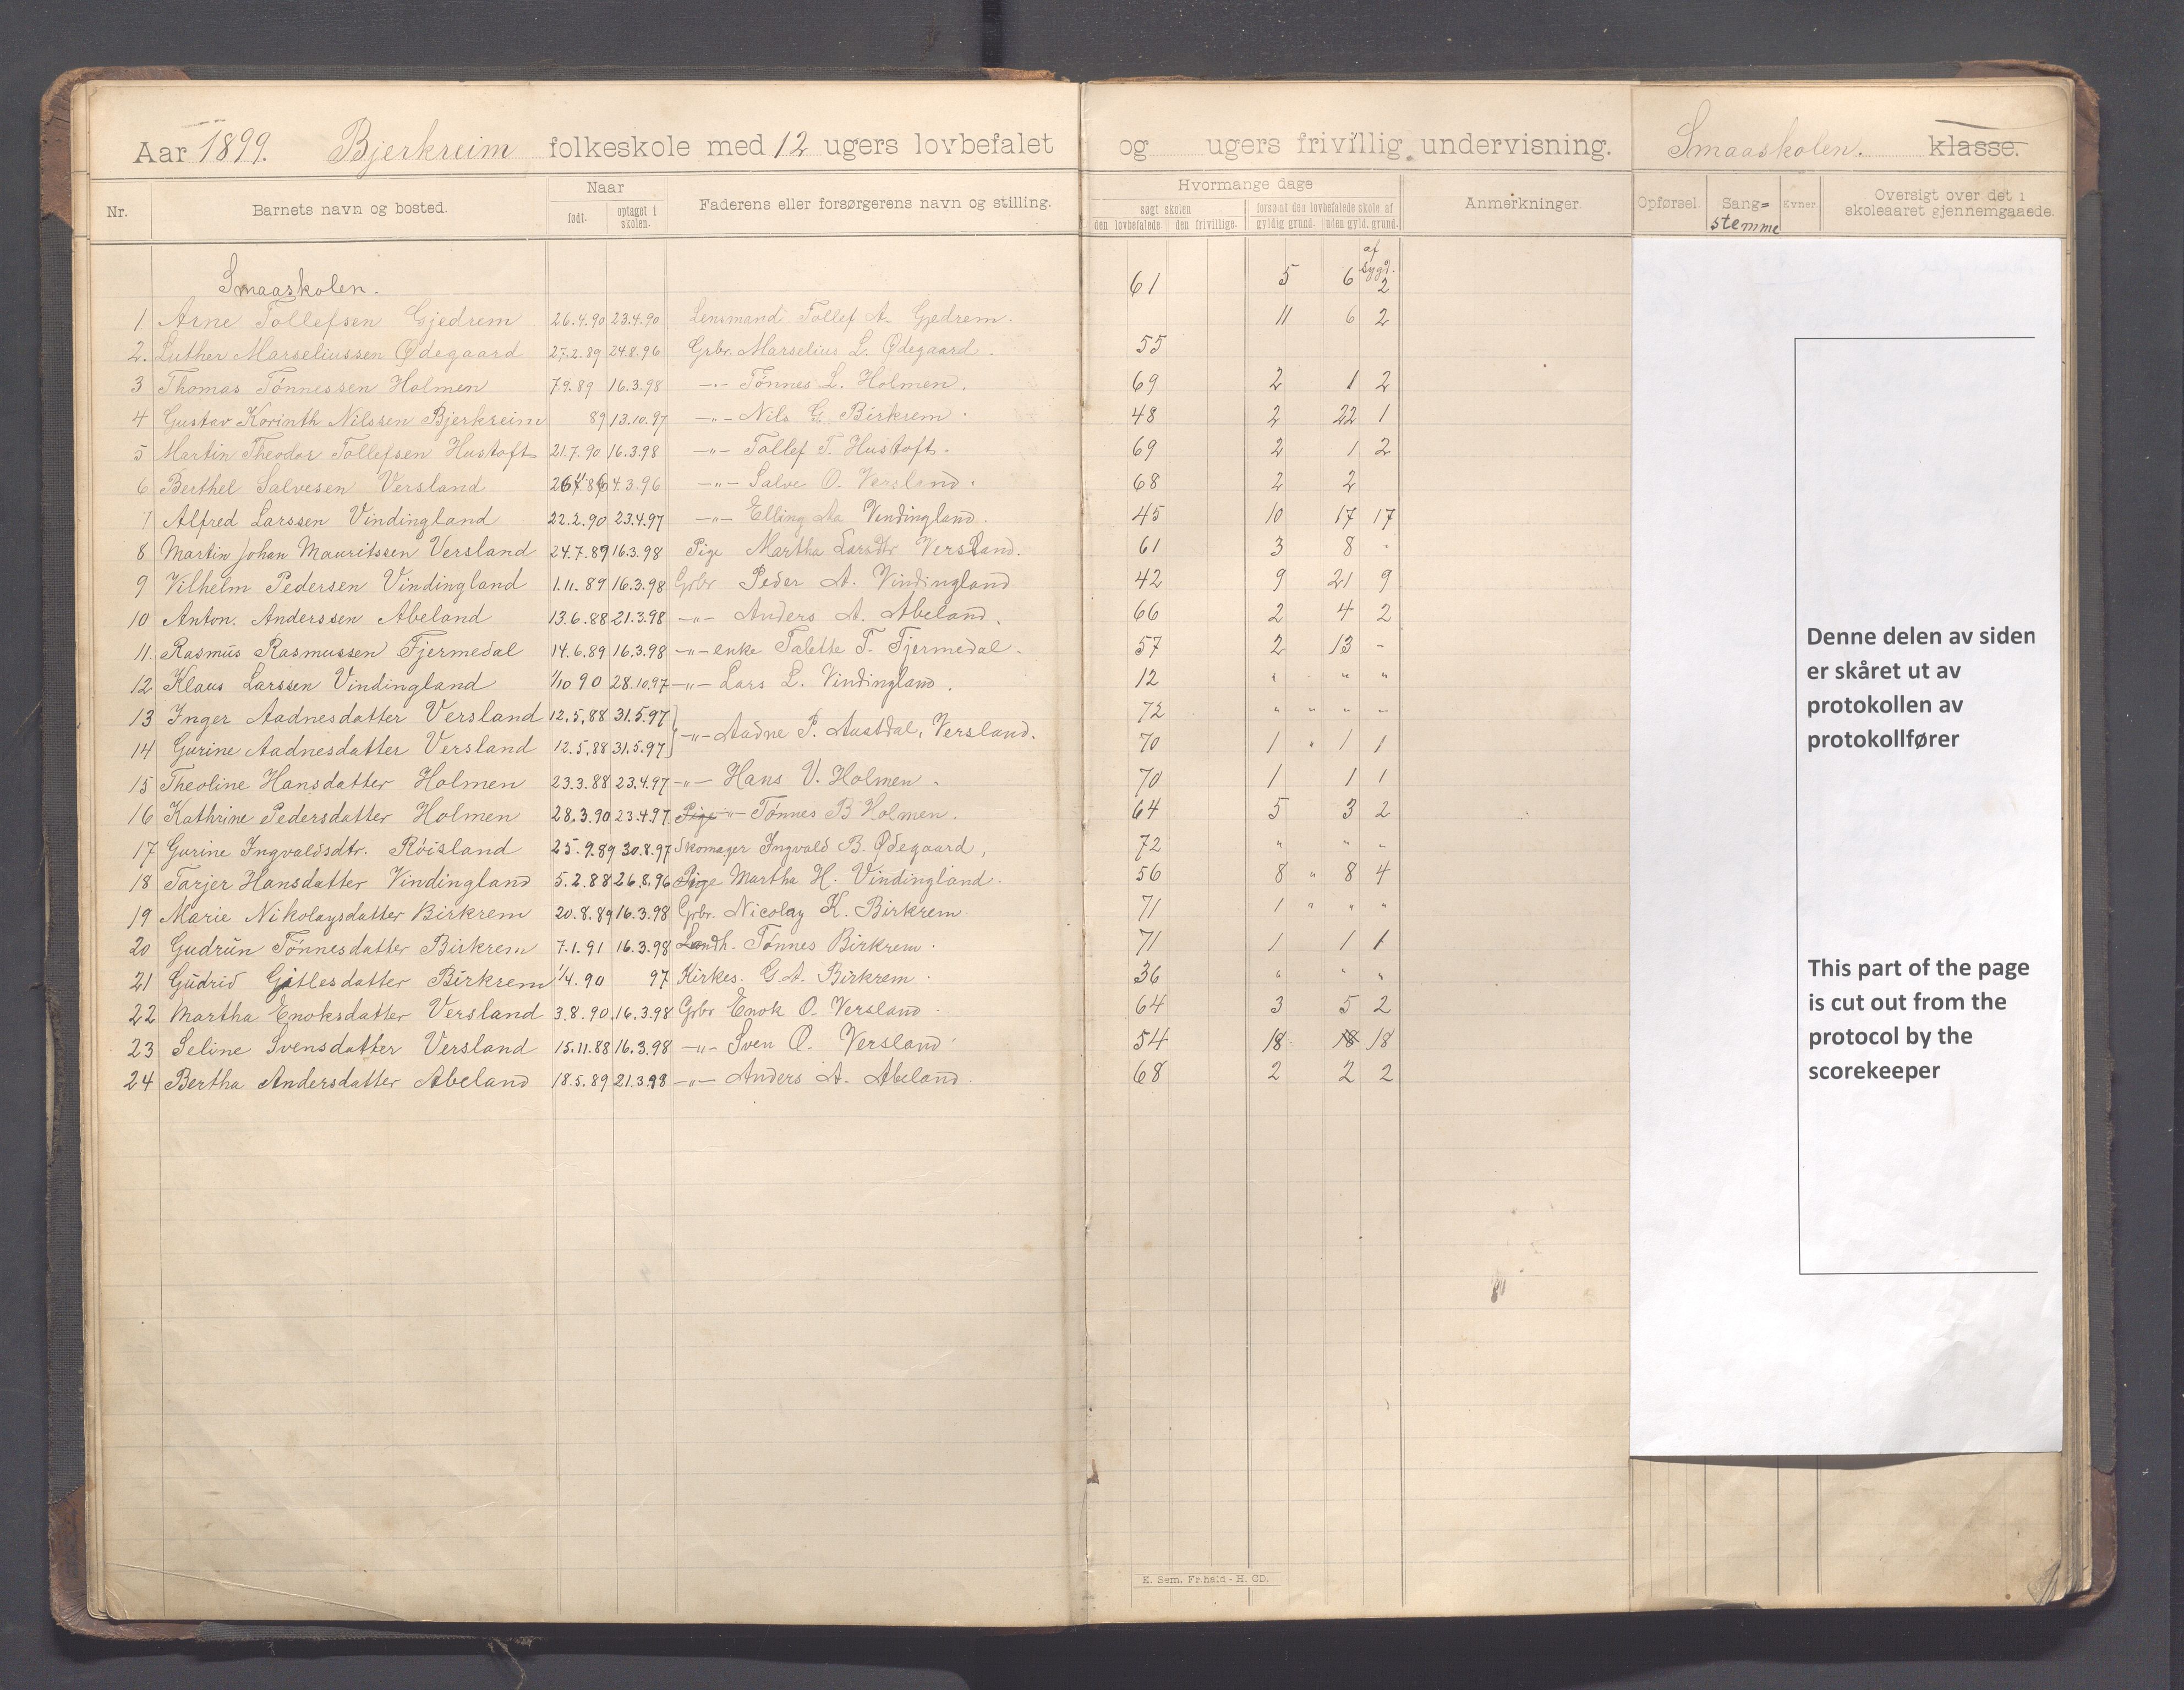 Aar 1899. Bjerkreim folkeskole med 12 ugers lovbefalet og ugers frivillig undervisning. Smaaskolen. klasse.
Nr. Barnets navn og bosted. Naar født. optaget i skolen. Faderens eller forsørgerens navn og stilling. Hvormange dage søgt skolen den lovbefalede den frivillige. forsømt den lovbefalede skole af gyldig grund. uden gyld. grund. Anmerkninger. Opførsel. Sang=stemme Evner. Oversigt over det i skoleaaret gjennemgaaede.
af sygd.
Smaaskolen. 61 5 6 2
1 Arne Tollefsen Gjedrem 26.4.90 23.4.90 Lensmand Tollef A. Gjedrem. 11 6 2
2. Luther Marseliussen Ødegaard 27.2.89 24.8.96 Grbr. Marselius L. Ødegaard. 55
3 Thomas Tønnessen Holmen 7.9.89 16.3.98 -"- Tønnes L. Holmen. 69 2 1 2
4 Gustav Korinth Nilssen Bjerkreim 89 13.10.97 -"- Nils G. Birkrem. 48 2 22 1
5 Martin Theodor Tollefsen Hustoft 21.7.90 16.3.98 -"- Tollef T. Hustoft. 69 2 1 2
6 Berthel Salvesen Versland 4.3.96 -"- Salve O. Versland. 68 2 2
7 Alfred Larssen Vindingland 22.2.90 23.4.97 -"- Elling Aa Vindingland. 45 10 17 17
8 Martin Johan Mauritssen Versland 24.7.89 16.3.98 Pige Martha Larsdtr Versland. 61 3 8 "
9 Vilhelm Pedersen Vindingland 1.11.89 16.3.98 Grbr Peder A. Vindingland 42 9 21 9
10 Anton. Anderssen Abeland 13.6.88 21.3.98 -"- Anders A. Abeland. 66 2 4 2
11. Rasmus Rasmussen Fjermedal 14.6.89 16.3.98 -"- enke Talette T. Fjermedal. 57 2 13 -
12 Klaus Larssen Vindingland 1/10 90 28.10.97 -"- Lars L. Vindingland. 12 " " "
13 Inger Aadnesdatter Versland 12.5.88 31.5.97 -"- Aadne P. Austdal, Versland. 72 " " " "
14 Gurine Aadnesdatter Versland 12.5.88 31.5.97 70 1 " 1 1
15 Theoline Hansdatter Holmen 23.3.88 23.4.97 -"- Hans V. Holmen. 70 1 1 1
16 Kathrine Pedersdatter Holmen 28.3.90 23.4.97 Pige -"- Tønnes B Holmen. 64 5 3 2
17 Gurine Ingvaldsdtr. Røisland 25.9.89 30.8.97 Skomager Ingvald B. Ødegaard, 72 " " "
18 Tarjer Hansdatter Vindingland 5.2.88 26.8.96 Pige Martha H. Vindingland. 56 8 " 8 4
19 Marie Nikolaysdatter Birkrem 20.8.89 16.3.98 Grbr. Nicolay K. Birkrem. 71 1 " " "
20 Gudrun Tønnesdatter Birkrem 7.1.91 16.3.98 Landh. Tønnes Birkrem. 71 1 1 1
21 Gudrid Gitlesdatter Birkrem 1/4.90 97 Kirkes. G.A. Birkrem. 36 " " "
22 Martha Enoksdatter Versland 3.8.90. 16.3.98 Grbr Enok O. Versland. 64 3 5 2
23 Seline Svensdatter Versland 15.11.88 16.3.98 -"- Sven O. Versland 54 18 18 18
24 Bertha Andersdatter Abeland 18.5.89 21.3.98 -"- Anders A. Abeland. 68 2 2 2
Denne delen av siden
er skåret ut av
protokollen av
protokollfører
This part of the page
is cut out from the
protocol by the
scorekeeper
E. Sem. Fr.hald - H. CD.